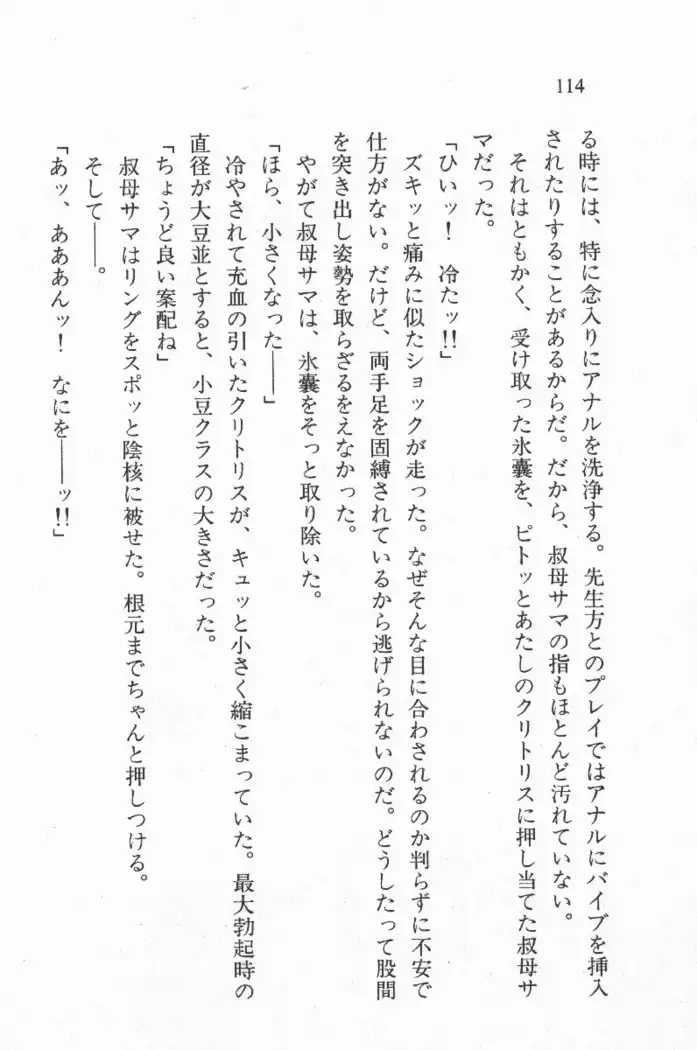 114
る時には、特に念入りにアナルを洗浄する。先生方とのプレイではアナルにバイブを挿入
されたりすることがあるからだ。だから、叔母サマの指もほとんど汚れていない。
それはともかく、受け取った氷嚢を、ピトッとあたしのクリトリスに押し当てた叔母サ
マだった。
「ひいッ！　冷たッ!!」
ズキッと痛みに似たショックが走った。なぜそんな目に合わされるのか判らずに不安で
仕方がない。だけど、両手足を固縛されているから逃げられないのだ。どうしたって股間
を突き出し姿勢を取らざるをえなかった。
やがて叔母サマは、氷嚢をそっと取り除いた。
「ほら、小さくなった――」
冷やされて充血の引いたクリトリスが、キュッと小さく縮こまっていた。最大勃起時の
直径が大豆並とすると、小豆クラスの大きさだった。
「ちょうど良い案配ね」
叔母サマはリングをスポッと陰核に被せた。根元までちゃんと押しつける。
そして――。
「あッ、あああんッ！　なにを――ッ!!」